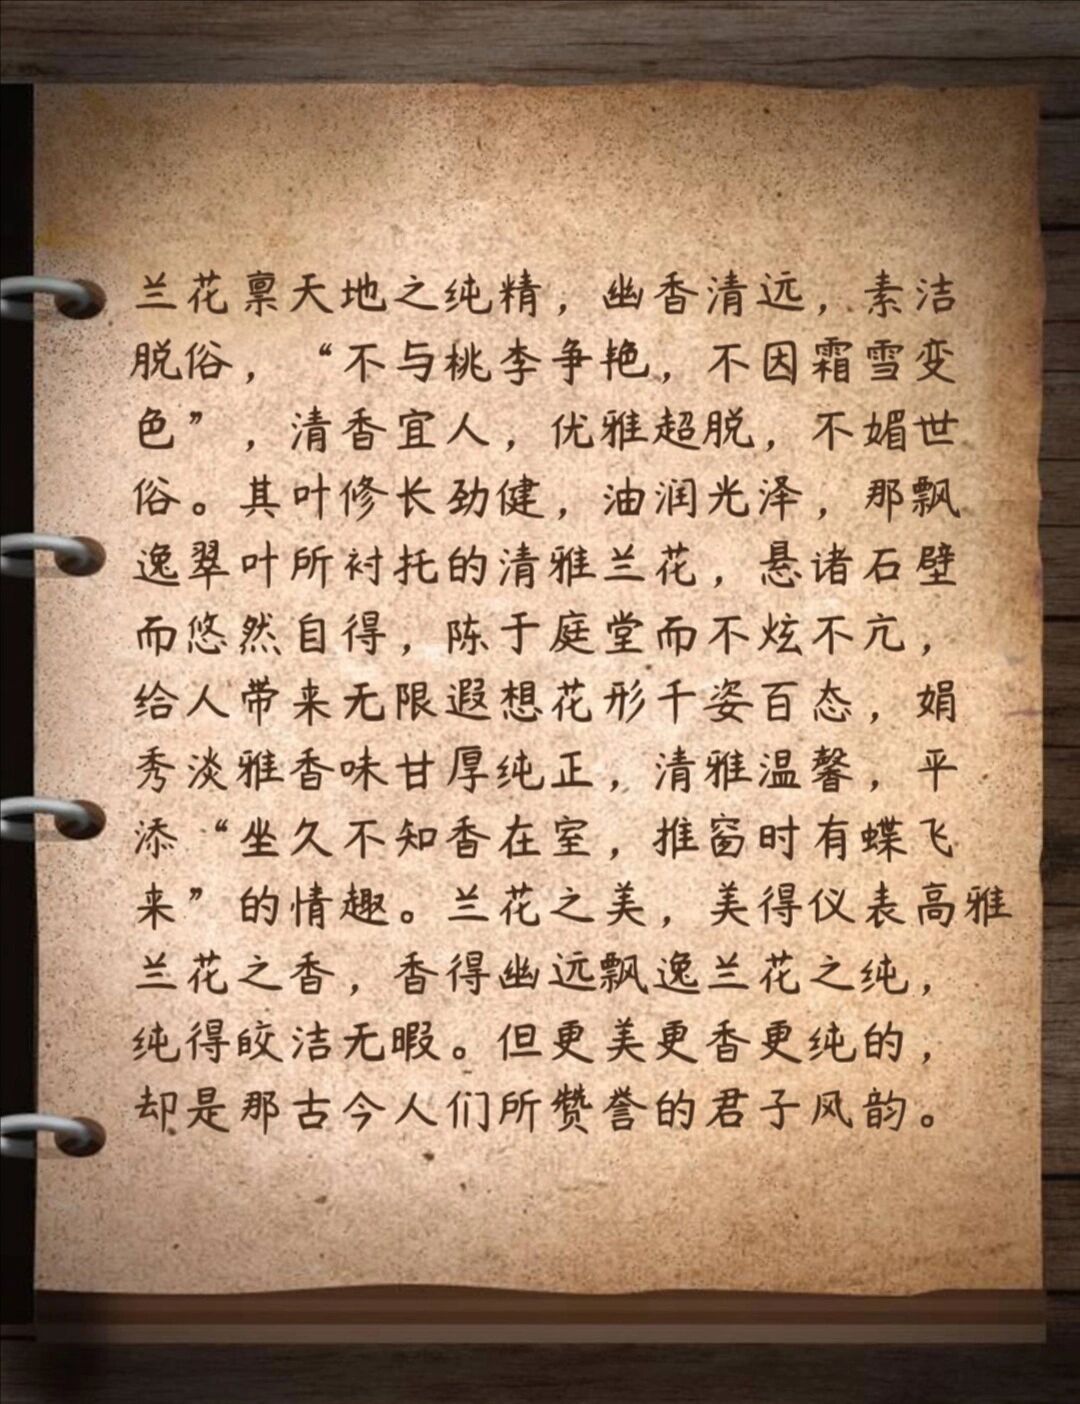 兰花禀天地之纯精，幽香清远，素洁
脱俗，“不与桃李争艳，不因霜雪变
色”，清香宜人，优雅超脱，不媚世
俗。其叶修长劲健，油润光泽，那飘
逸翠叶所衬托的清雅兰花，悬诸石壁
而悠然自得，陈于庭堂而不炫不亢，
给人带来无限遐想花形千姿百态，娟
秀淡雅香味甘厚纯正，清雅温馨，平
添“坐久不知香在室，推窗时有蝶飞
来”的情趣。兰花之美，美得仪表高雅
兰花之香，香得幽远飘逸兰花之纯，
纯得皎洁无暇。但更美更香更纯的，
却是那古今人们所赞誉的君子风韵。